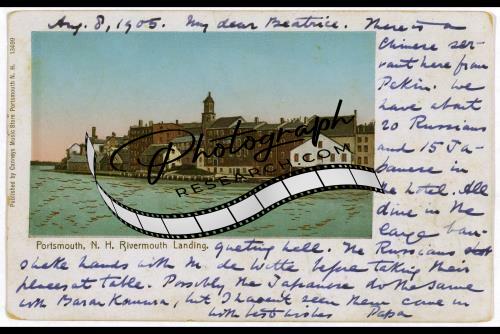 Aug. 8, 1905. My dear Beatrice. There is a
Chinese ser-
vant here from
Pekin. We
have about
20 Russians
and 15 Ja-
panese in
the hotel. All
dine in the
large ban-
queting hall. The Russians
shake hands with M. de Witte before taking their
places at table. Possibly the Japanese do the same
with Baron Komura, but I haven't seen them come in
with best wishes Papa
Published by Conveys Music Store Portsmouth N. H. 13499
Portsmouth, N. H. Rivermouth Landing.
Photograph
RESEARCH.COM